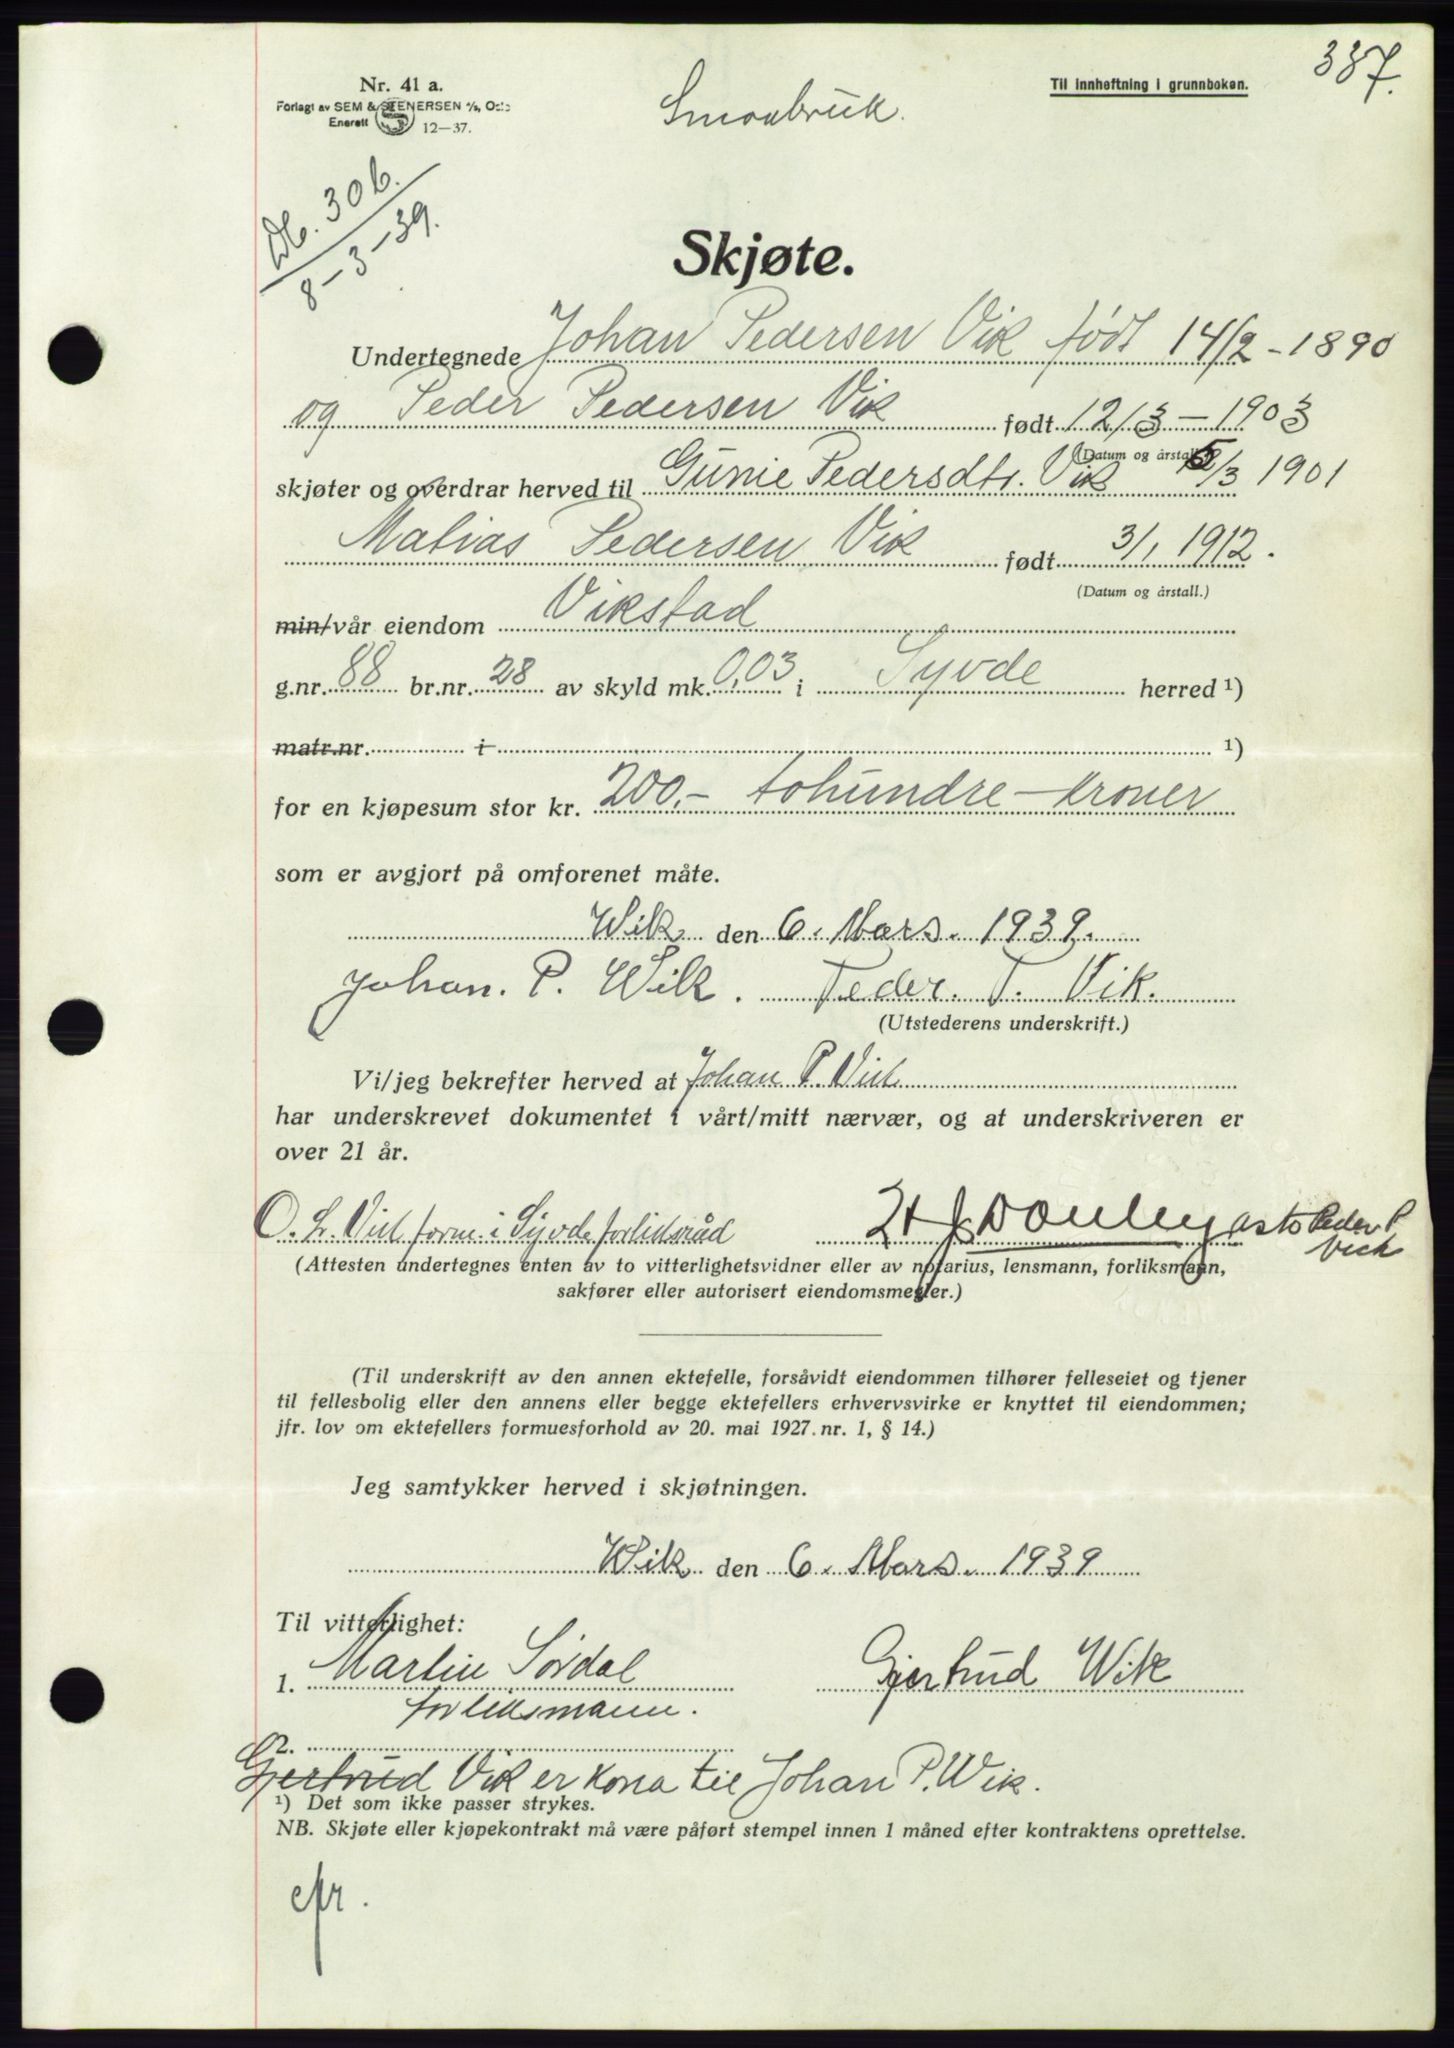 387.
Nr. 41 a.
Forlagt av SEM & STENERSEN A/S, Oslo
Enerett
12—37.
Til innheftning i grunnboken.
Smaabruk.
Db. 306.
8-3-39.
Skjøte.
Undertegnede Johan Pedersen Vik født 14/2 - 1890
og Peder Pedersen Vik født 12/3 - 1903
(Datum og årstall.)
skjøter og overdrar herved til Gunie Pedersdtr. Vik 5/3 1901
Matias Pedersen Vik født 3/1 1912.
(Datum og årstall.)
min/vår eiendom Vikstad
g.nr. 88 br.nr. 28 av skyld mk. 0,03 i Syvde herred ¹)
matr.nr. i ¹)
for en kjøpesum stor kr. 200.- tohundre - kroner
som er avgjort på omforenet måte.
Wik den 6. Mars. 1939.
Johan. P. Wik. Peder. P. Vik.
(Utstederens underskrift.)
Vi/jeg bekrefter herved at Johan P. Vik
har underskrevet dokumentet i vårt/mitt nærvær, og at underskriveren er
over 21 år.
O. L. Vik form. i Syvde forliksråd
Peder P.
Vik
(Attesten undertegnes enten av to vitterlighetsvidner eller av notarius, lensmann, forliksmann,
sakfører eller autorisert eiendomsmegler.)
(Til underskrift av den annen ektefelle, forsåvidt eiendommen tilhører felleseiet og tjener
til fellesbolig eller den annens eller begge ektefellers erhvervsvirke er knyttet til eiendommen;
jfr. lov om ektefellers formuesforhold av 20. mai 1927. nr. 1, § 14.)
Jeg samtykker herved i skjøtningen.
Wik den 6. Mars. 1939
Til vitterlighet:
1. Martin Sørdal Gjertrud Wik
forliksmann.
2.
Gjertrud Vik er kona til Johan P. Wik.
¹) Det som ikke passer strykes.
NB. Skjøte eller kjøpekontrakt må være påført stempel innen 1 måned efter kontraktens oprettelse.